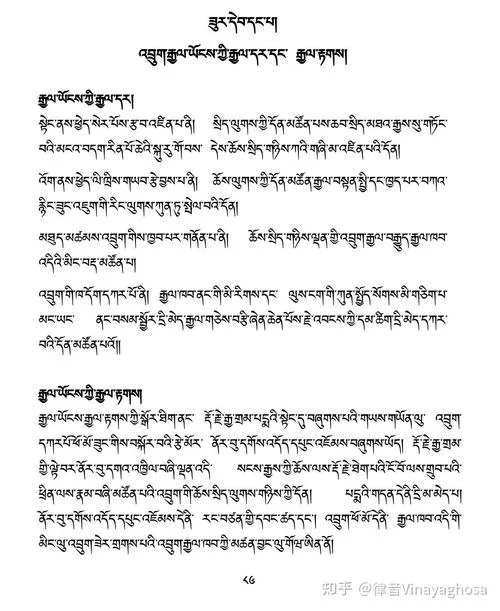 ཟུར་དེབ་དང་པ།
འབྲུག་རྒྱལ་ཡོངས་ཀྱི་རྒྱལ་དར་དང་ རྒྱལ་རྟགས།
རྒྱལ་ཡོངས་ཀྱི་རྒྱལ་དར།
སྟེང་ནས་ཕྱེད་སེར་པོས་རྩ་བ་འཛིན་པ་ནི། སྲིད་ལུགས་ཀྱི་དོན་མཚོན་པས་ཆབ་སྲིད་མཐའ་རྒྱས་སུ་གཏོང་
བའི་མངའ་བདག་རིན་པོ་ཆེའི་སྐུ་རུ་གོ་བས་ དེས་ཆོས་སྲིད་གཉིས་ཀའི་གཞི་མ་འཛིན་པའི་དོན།
འོག་ནས་ཕྱེད་ལི་ཁྲིས་གཡབ་རྩེ་བྱས་པ་ནི། ཆོས་ལུགས་ཀྱི་དོན་མཚོན་རྒྱལ་བསྟན་སྤྱི་དང་ཁྱད་པར་བཀའ་
རྙིང་ཟུང་འཇུག་གི་རིང་ལུགས་ཀུན་ཏུ་སྤེལ་བའི་དོན།
མཐུད་མཚམས་འབྲུག་གིས་ཁྱབ་པར་གནོན་པ་ནི། ཆོས་སྲིད་གཉིས་ལྡན་གྱི་འབྲུག་རྒྱལ་བརྒྱུད་རྒྱལ་ཁབ་
འདིའི་མིང་བརྡ་མཚོན་པ།
འབྲུག་གི་ཁ་དོག་དཀར་པོ་ནི། རྒྱལ་ཁབ་ནང་གི་མི་རིགས་དང་ ལུས་ངག་གི་ཀུན་སྤྱོད་སོགས་མི་གཅིག་པ་
མང་ཡང་ ནང་བསམ་སྦྱོར་དྲི་མེད་རྒྱལ་གཅེས་བརྩི་ཞེན་ཆེན་པོས་རྗེ་འབངས་ཀྱི་དམ་ཚིག་དྲི་མེད་དཀར་
བའི་དོན་མཚོན་པའོ།།
རྒྱལ་ཡོངས་ཀྱི་རྒྱལ་རྟགས།
རྒྱལ་ཡོངས་རྒྱལ་རྟགས་ཀྱི་སྒོར་ཐིག་ནང་ རྡོ་རྗེ་རྒྱ་གྲམ་པདྨའི་སྟེང་དུ་བཞུགས་པའི་གཡས་གཡོན་ལུ་ འབྲུག་
དཀར་པོ་ཕོ་མོ་ཟུང་གིས་བསྐོར་བའི་རྩེ་མོར་ ནོར་བུ་དགོས་འདོད་དཔུང་འཇོམས་བཞུགས་ཡོད། རྡོ་རྗེ་རྒྱ་གྲམ་
གྱི་ལྟེ་བར་ནོར་བུ་དགའ་འཁྱིལ་བཞི་ལྡན་འདི་ སངས་རྒྱས་ཀྱི་ཆོས་ལས་རྡོ་རྗེ་ཐེག་པའི་ངོ་བོ་ལས་གྲུབ་པའི་
ཕྲིན་ལས་རྣམ་བཞི་མཚོན་པའི་འབྲུག་གི་ཆོས་སྲིད་ལུགས་གཉིས་ཀྱི་དོན། པདྨའི་གདན་དེ་ནི་དྲི་མ་མེད་པ།
ནོར་བུ་དགོས་འདོད་དཔུང་འཇོམས་དེ་ནི་ རང་བཙན་གྱི་དབང་ཚད་དང་། འབྲུག་ཕོ་མོ་དེ་ནི་ རྒྱལ་ཁབ་འདི་གི་
མིང་ལུ་འབྲུག་ཟེར་གྲགས་པའི་འབྲུག་རྒྱལ་ཁབ་ཀྱི་མཚན་བྱང་ལུ་གོཝ་ཨིན་ནོ།
༨༧
知乎 @律音Vinayaghosa